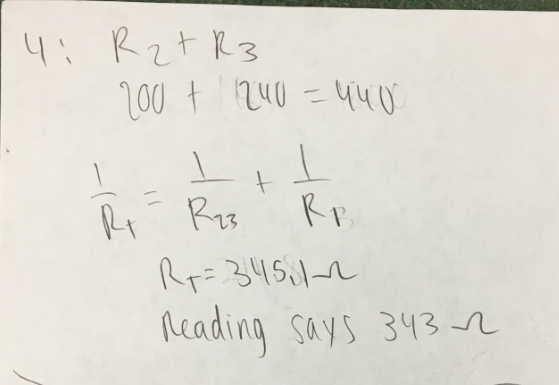 4: R2 + R3
200 + 240 = 440
1/RT = 1/R23 + 1/RP
RT = 345.1Ω
Reading says 343 Ω